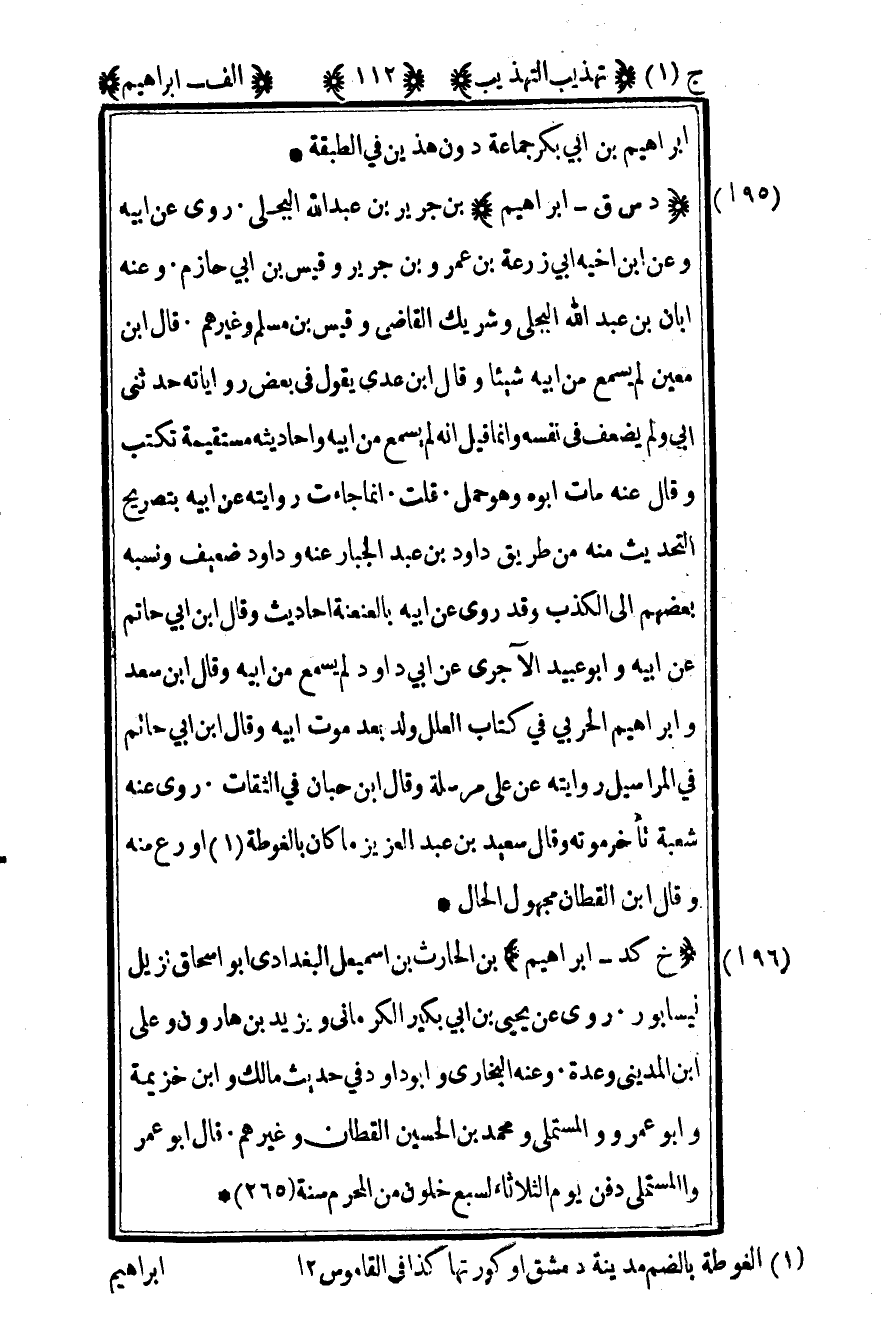 ج (١) ﴿ تهذيب التهذيب ﴾ ﴿ ١١٢ ﴾ ﴿ الف ـ ابراهيم ﴾
ابراهيم بن ابي بكر جماعة دون هذين في الطبقة *
(١٩٥) ﴿ د س ق ـ ابراهيم ﴾ بن جرير بن عبدالله البجلي ٠ روى عن ابيه
وعن ابن اخيه ابي زرعة بن عمرو بن جرير وقيس بن ابي حازم ٠ وعنه
ابان بن عبد الله البجلي وشريك القاضى وقيس بن مسلم وغيرهم ٠ قال ابن
معين لم يسمع من ابيه شيئا وقال ابن عدى يقول فى بعض رواياته حدثنى
ابي ولم يضعف فى نفسه وانما قيل انه لم يسمع من ابيه واحاديثه مستقيمة تكتب
وقال عنه مات ابوه وهو حمل ٠ قلت ٠ انما جاءت روايته عن ابيه بتصريح
التحديث منه من طريق داود بن عبد الجبار عنه وداود ضعيف ونسبه
بعضهم الى الكذب وقد روى عن ابيه بالعنعنة احاديث وقال ابن ابي حاتم
عن ابيه وابو عبيد الآجرى عن ابي داود لم يسمع من ابيه وقال ابن سعد
وابراهيم الحربي في كتاب العلل ولد بعد موت ابيه وقال ابن ابي حاتم
في المراسيل روايته عن على مرسلة وقال ابن حبان في الثقات ٠ روى عنه
شعبة تأخر موته وقال سعيد بن عبد العزيز ما كان بالغوطة (١) اورع منه
وقال ابن القطان مجهول الحال *
(١٩٦) ﴿ خ كد ـ ابراهيم ﴾ بن الحارث بن اسمعيل البغدادى ابو اسحاق نزيل
نيسابور ٠ روى عن يحيى بن ابي بكير الكرمانى ويزيد بن هارون وعلى
ابن المدينى وعدة ٠ وعنه البخارى وابو داود في حديث مالك وابن خزيمة
وابو عمرو و المستملى ومحمد بن الحسين القطان وغيرهم ٠ قال ابو عمر
واالمستملى دفن يوم الثلاثاء لسبع خلون من المحرم سنة (٢٦٥) *
(١) الغوطة بالضم مدينة دمشق او كورتها كذا فى القاموس ١٢ ابراهيم